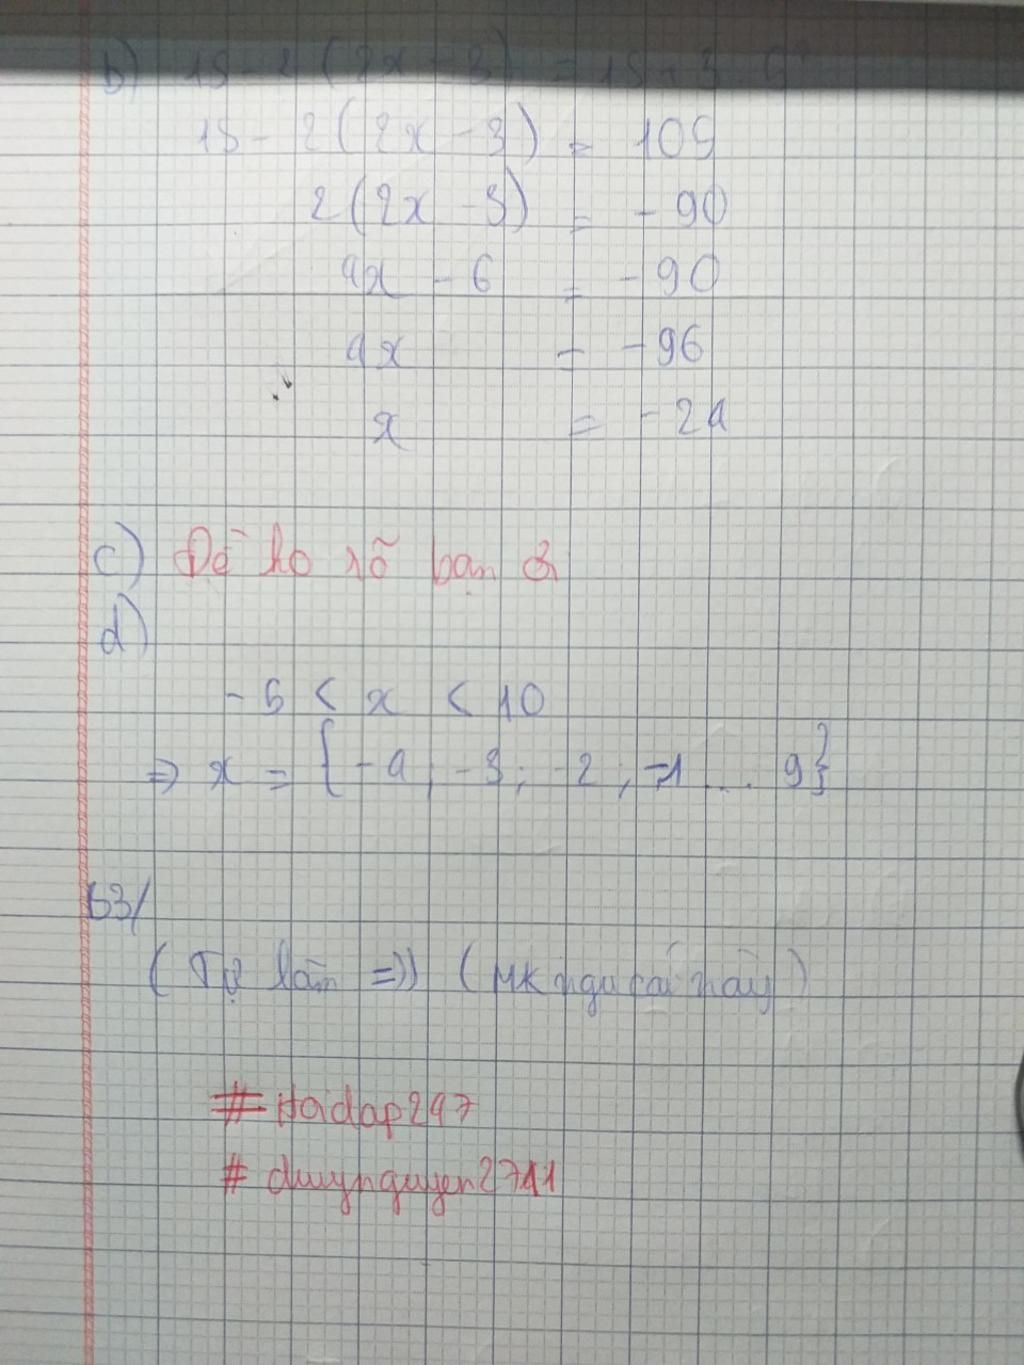 b) 15 - 2 ( 2x - 3 ) = 15 + 3 .
15 - 2 ( 2x - 3 ) = 105
2 ( 2x - 3 ) = - 90
4x - 6 = - 90
4x = - 96
x = - 24
c) Đề ko rõ bạn ơi
d)
- 5 < x < 10
=> x = { - 4 ; - 3 ; - 2 ; - 1 ... 9 }
b3/
( Tự làm =)) ( mk ngu cái này )
# Hoidap247
# duynguyen2711